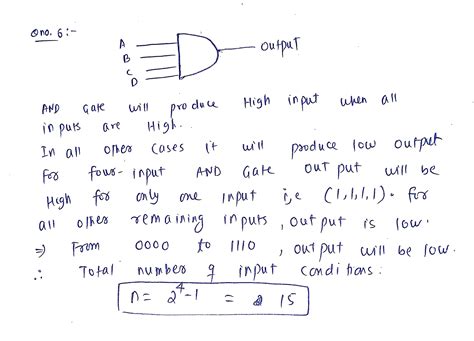 Qno. 6:-
A
B
C
D
output
AND Gate will produce High input when all
inputs are High.
In all other cases it will produce low output
for four-input AND Gate output will be
High for only one input i,e (1,1,1,1). for
all other remaining inputs, output is low.
⇒ From 0000 to 1110, output will be low.
∴ Total number of input conditions:
n = 2^4-1 = 15